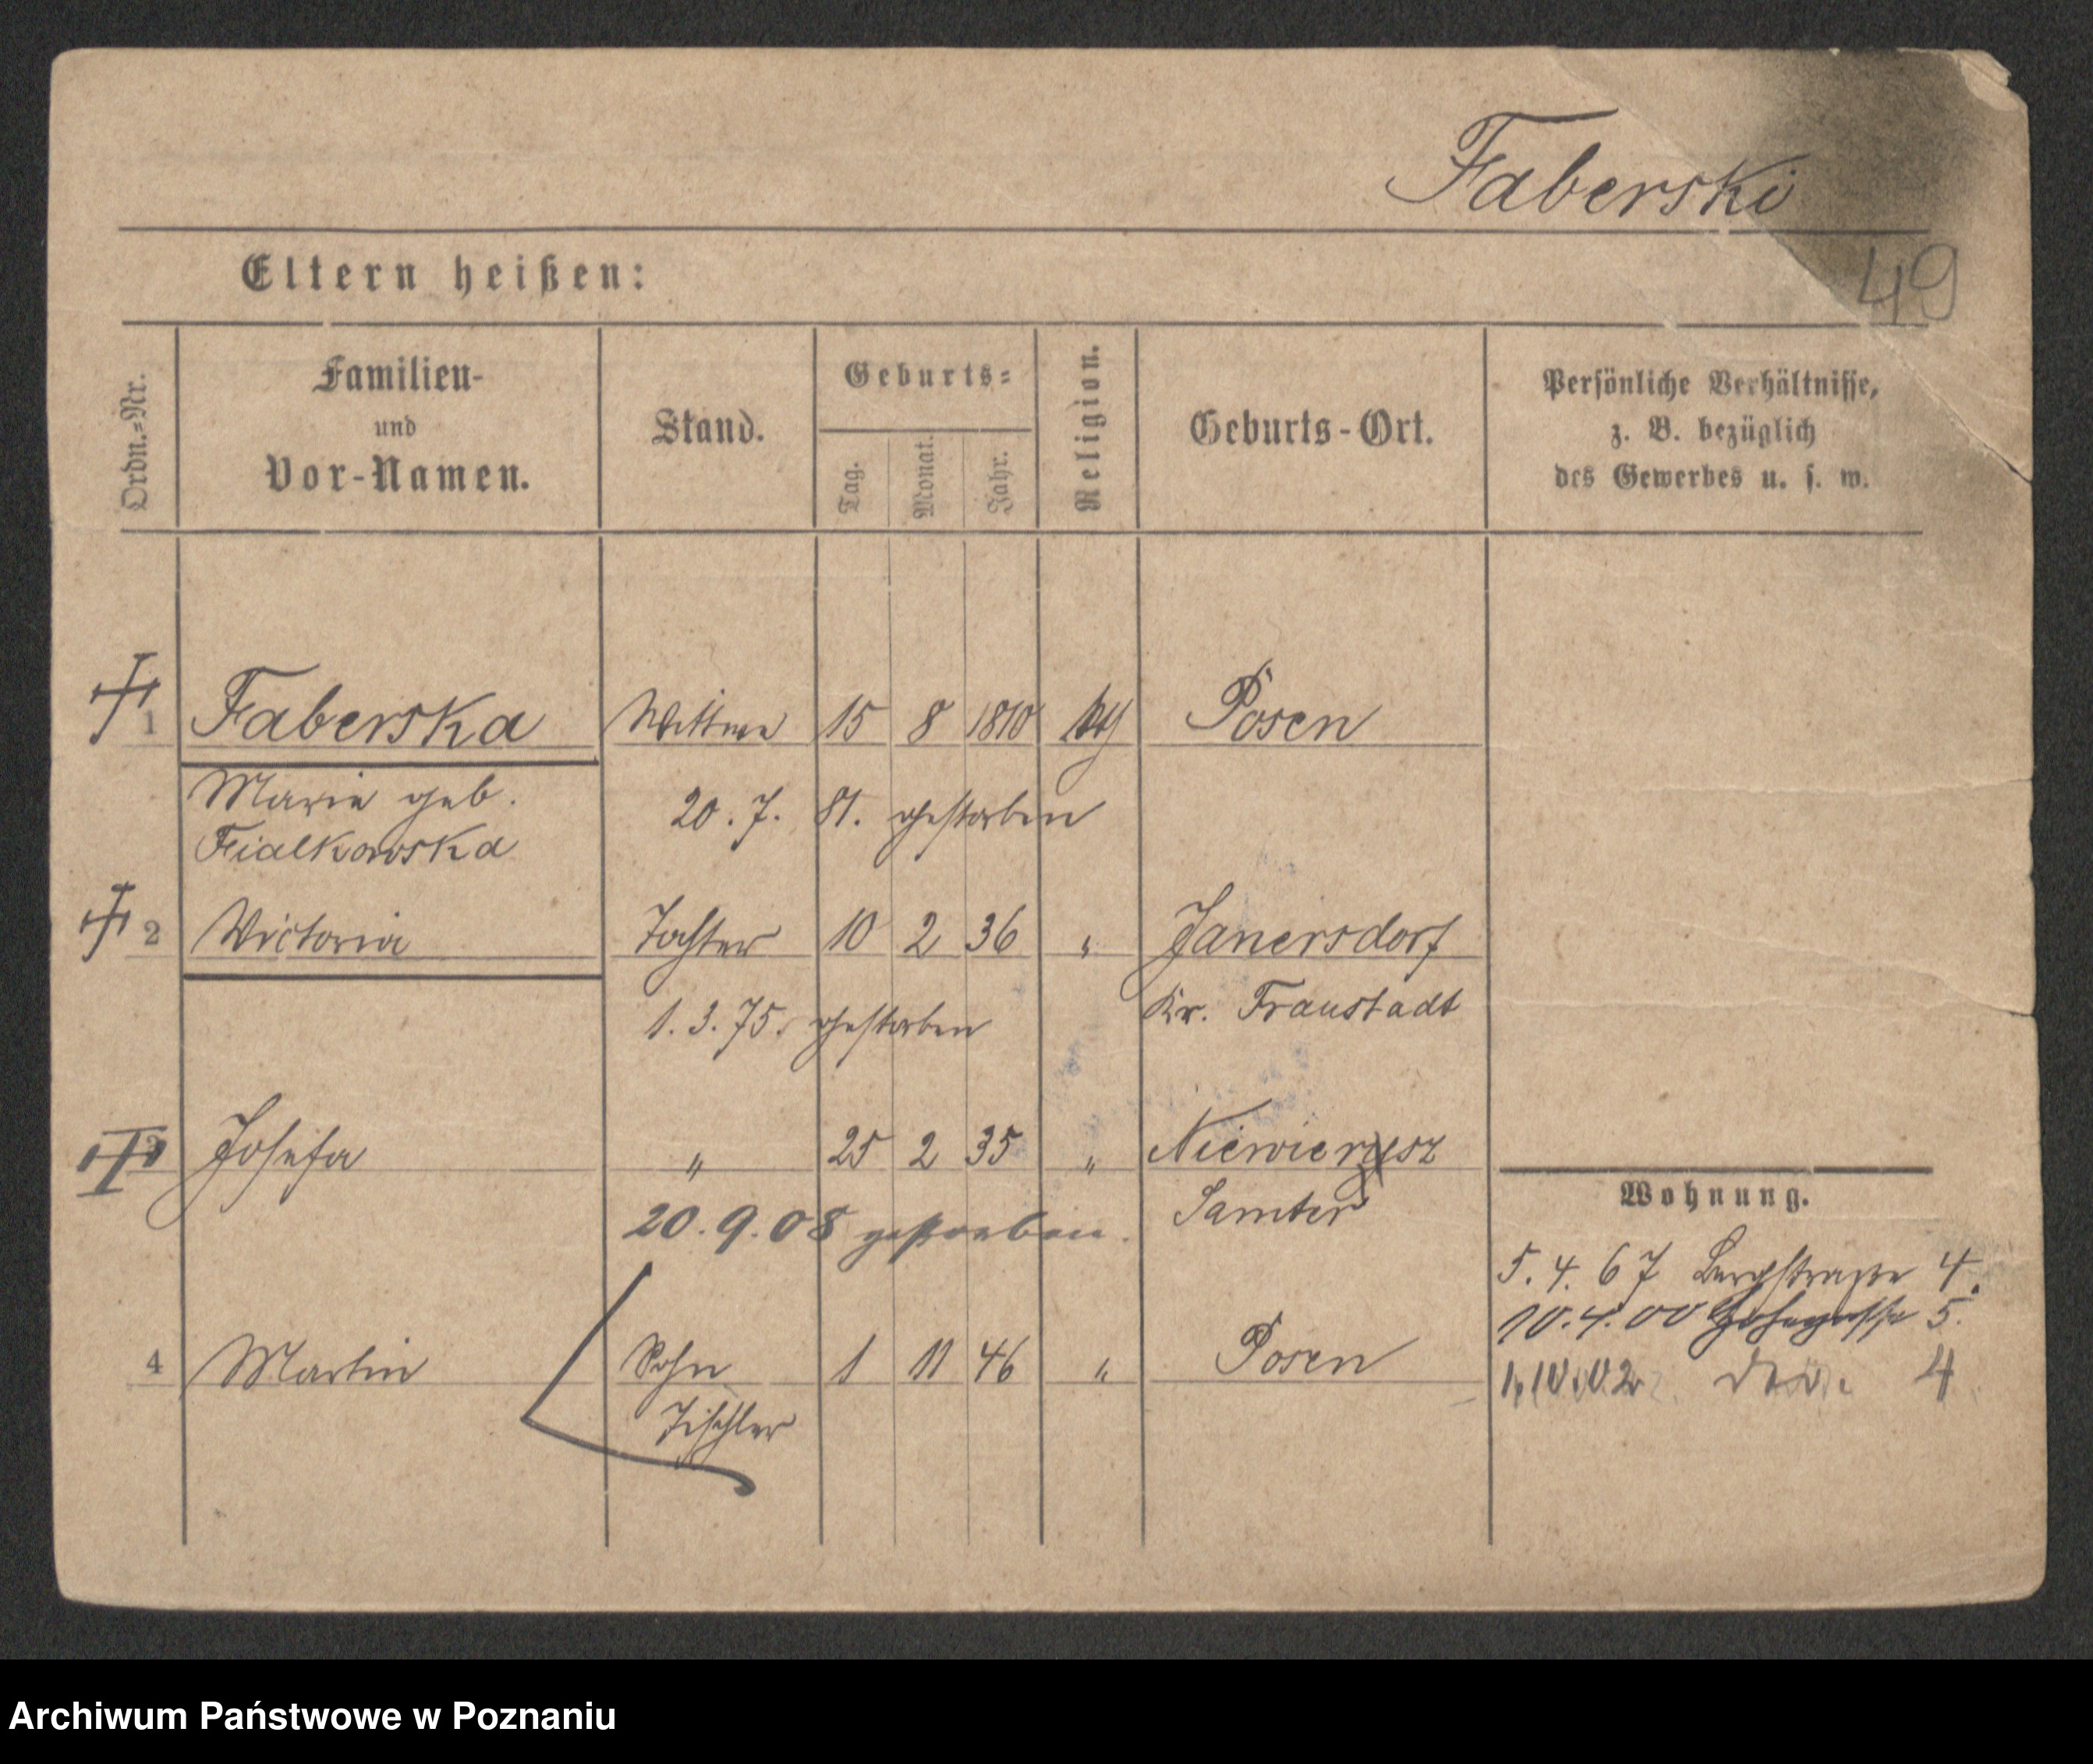 Faberski
49
Eltern heißen:
Ordn.-Nr.
Familien-
und
Vor-Namen.
Stand.
Geburts-
Tag.
Monat.
Jahr.
Religion.
Geburts-Ort.
Persönliche Verhältnisse,
z. B. bezüglich
des Gewerbes u. s. w.
1 Faberska Wittwe 15 8 1810 Posen
Marie geb. 20. 7. 81. gestorben
Fialkowska
2 Victoria Tochter 10 2 36 " Janersdorf
1. 3. 75. gestorben Kr. Fraustadt
3 Josefa " 25 2 35 " Niewierysz
20. 9. 08 gestorben. Samter
Wohnung.
5. 4. 67 Bergstrasse 4.
10. 4. 00 5.
4 Martin Sohn 1 11 46 " Posen
1.10.02 4
Tischler
Archiwum Państwowe w Poznaniu